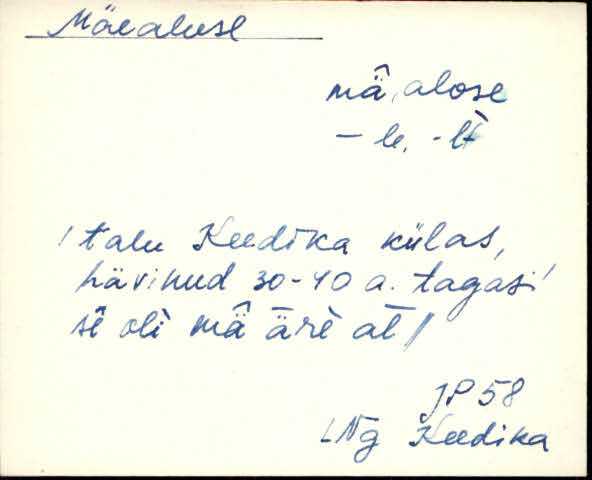 Mäealuse
mä̂, alose
- le, - lt
! talu Keedika külas,
hävinud 30-40 a. tagasi!
sē oli mä̂ äre al /
JP 58
LNg Keedika